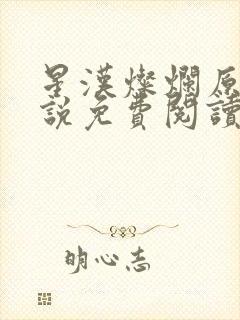 星漢燦爛原
說免費閱讀
明心志